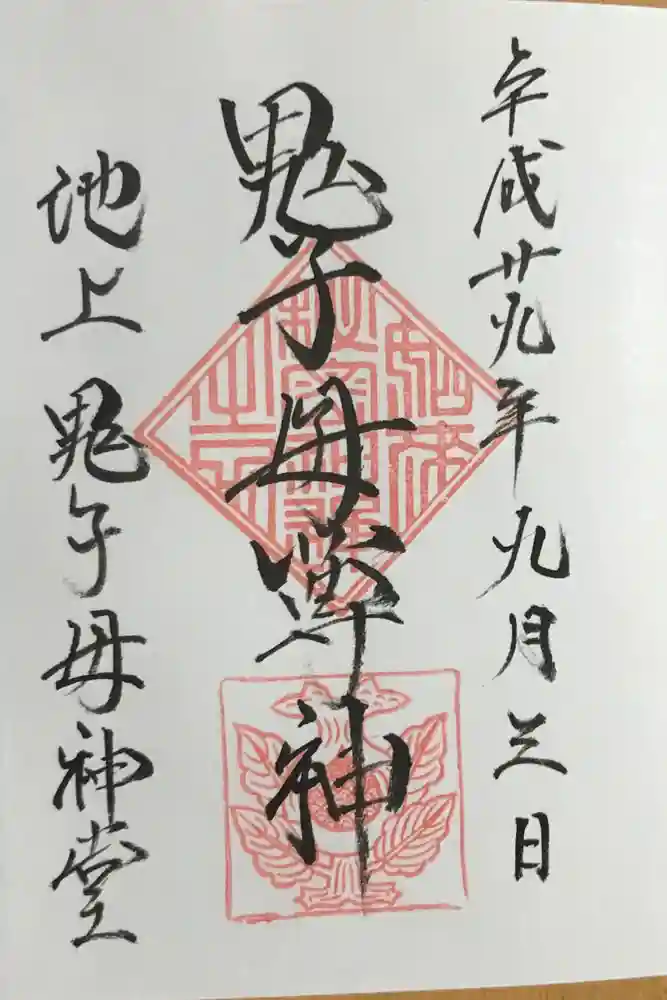 平成廿九年九月三日
鬼子母尊神
池上鬼子母神堂